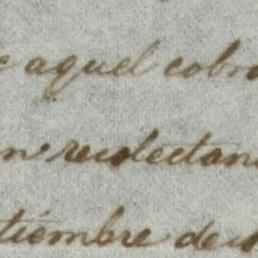 aquel cobra
recolectan
tiembre de